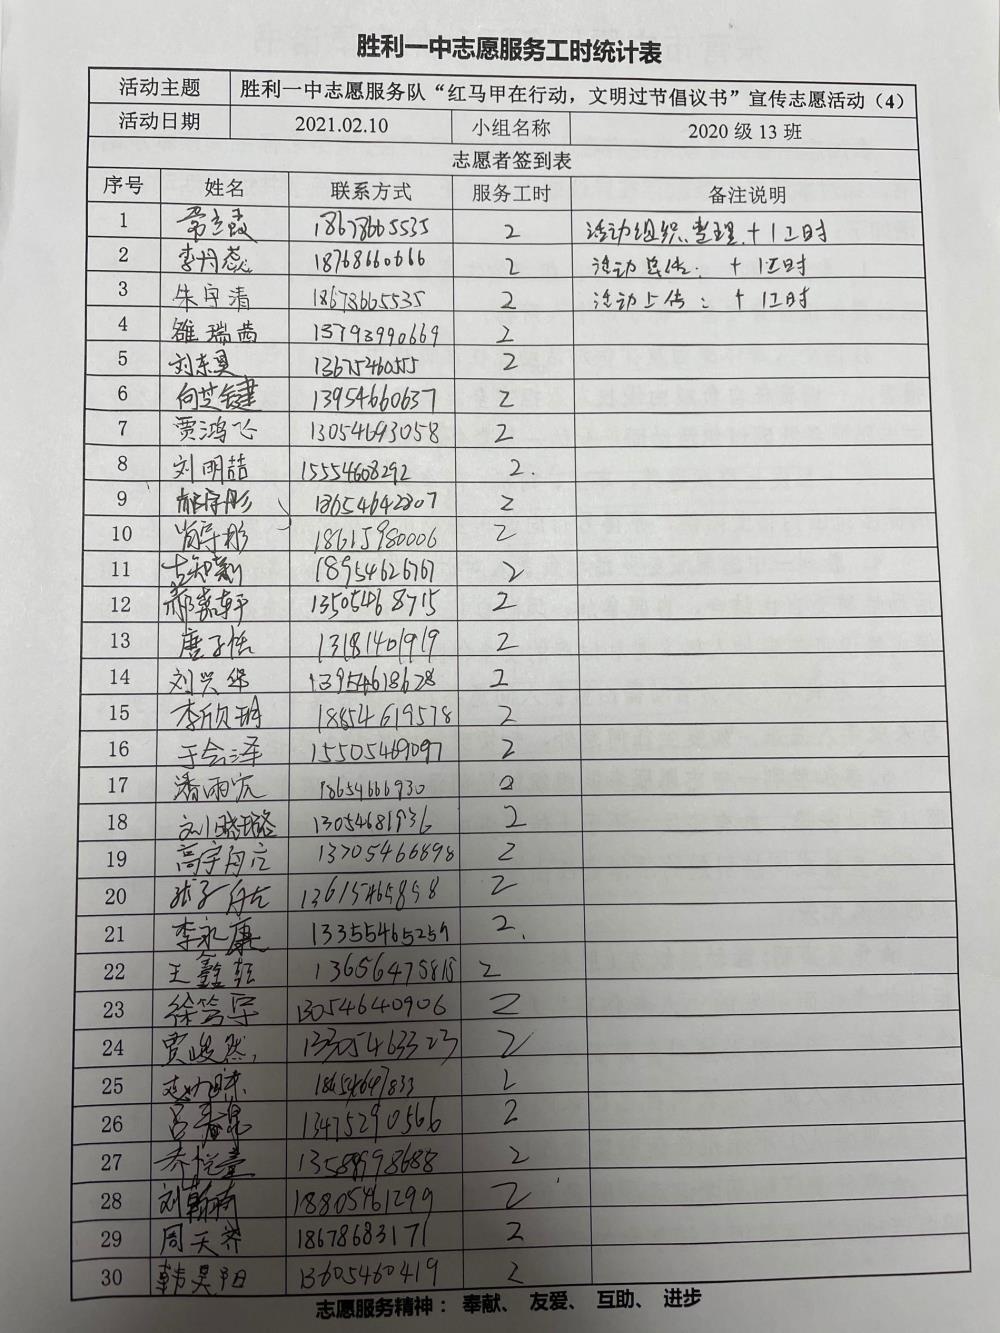 胜利一中志愿服务工时统计表
活动主题 胜利一中志愿服务队“红马甲在行动，文明过节倡议书”宣传志愿活动（4）
活动日期 2021.02.10 小组名称 2020 级 13 班
志愿者签到表
序号 姓名 联系方式 服务工时 备注说明
1 18678665535 2 活动组织.整理.+1工时
2 李丹蕊 18768660666 2 活动宣传: +1工时
3 朱宇清 18678665535 2 活动上传: +1工时
4 雒瑞茜 13793990669 2
5 刘东昊 13675460555 2
6 何芝键 13954660637 2
7 贾鸿飞 13054693058 2
8 刘明喆 15554608292 2.
9 2
10 肖宇彬 18615980006 2
11 18954626767 2
12 郝嘉轩 13505468715 2
13 唐子恬 13181401919 2
14 刘兴华 13954618628 2
15 李欣玥 18854619578 2
16 于会泽 15505469097 2
17 潘雨宸 18654666930 2
18 刘晓璐 13054681936 2
19 高宇舟 13705466898 2
20 13615465858 2
21 李永康 13355465259 2.
22 王鑫 13656475815 2
23 13054640906 2
24 贾峻然 13305463323 2
25 18654647833 2
26 13475290566 2
27 乔悦萱 13589998688 2
28 刘 18805461299 2
29 周天齐 18678683171 2
30 韩昊阳 13605460419 2
志愿服务精神： 奉献、 友爱、 互助、 进步